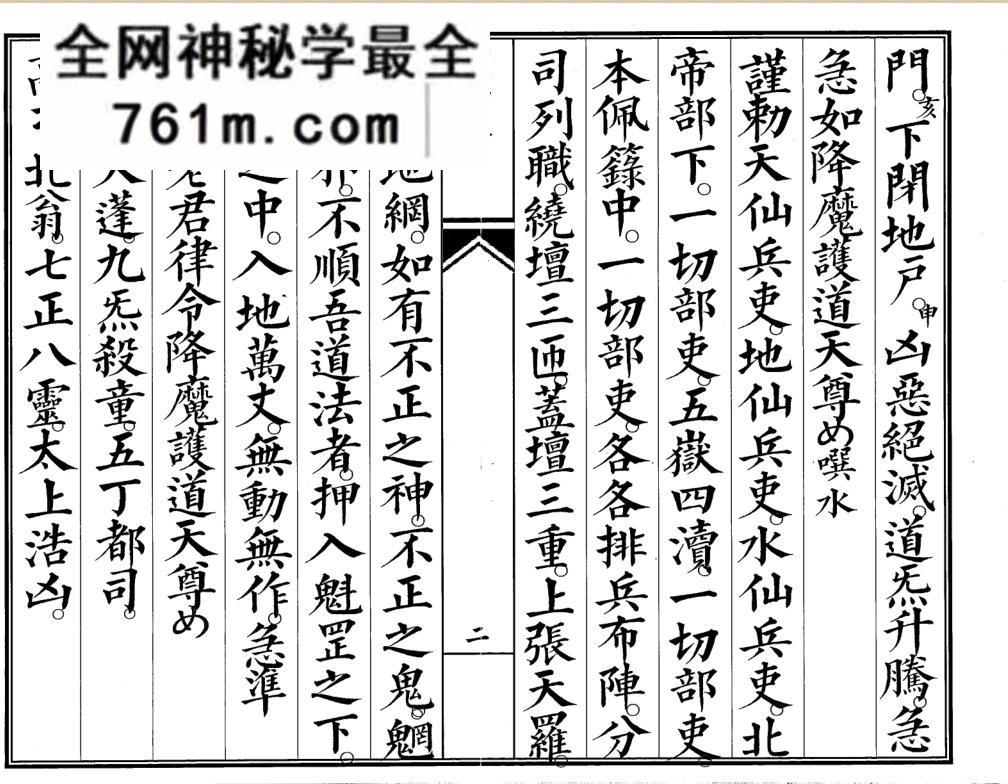 全网神秘学最全
761m.com
門。亥下閉地戸。申凶惡絕滅。道炁升騰。急
急如降魔護道天尊め噀水
謹勅天仙兵吏。地仙兵吏。水仙兵吏。北
帝部下。一切部吏。五嶽四瀆。一切部吏。
本佩籙中。一切部吏。各各排兵布陣。分
司列職。繞壇三匝。蓋壇三重。上張天羅。
二
地網。如有不正之神。不正之鬼。魍
邪。不順吾道法者。押入魁罡之下。
之中。入地萬丈。無動無作。急準
老君律令降魔護道天尊め
天蓬。九炁殺童。五丁都司。
北翁。七正八靈。太上浩凶。